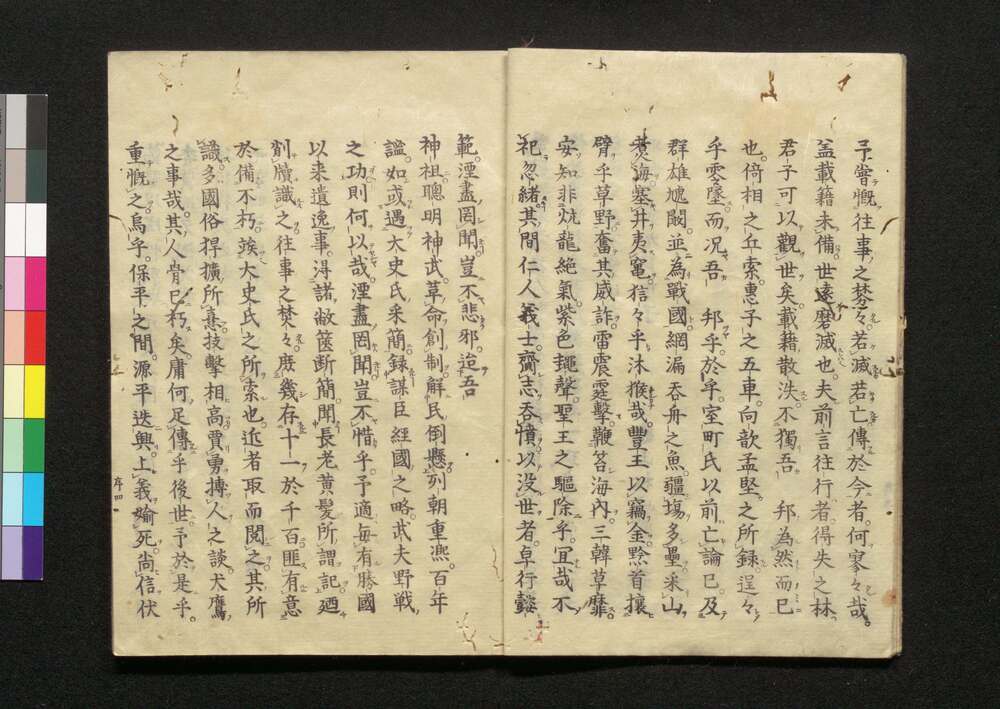 予嘗慨往事之棼々若滅若亡傳於今者何寥々哉
盖載籍未備世遠磨滅也夫前言往行者得失之林
君子可以觀世矣載籍散泆不獨吾 邦為然而已
也倚相之丘索惠子之五車向歆孟堅之所録逞々
乎零墜而况吾 邦乎於乎室町氏以前亡論已及
群雄虓闞並為戰國網漏吞舟之魚疆塲多壘采山
煑海塞井夷竃狺々乎沐猴哉豐王以竊金黥首攘
臂乎草野奮其威詐雷震霆擊鞭笞海內三韓草靡
安知非炕龍絕氣紫色䵷聲聖王之驅除乎冝哉不
祀忽緒其間仁人義士齎志吞憤以没世者卓行懿
範湮盡罔聞豈不悲邪迨吾
神祖聰明神武革命創制解民倒懸列朝重凞百年
謐如或遇大史氏采簡録謀臣經國之略武夫野戰
之功則何以哉湮盡罔聞豈不惜乎予適每有勝國
以来遺逸事淂諸敝篋断簡聞長老黄髮所謂記廼
削牘識之往事之棼々庶幾存十一於千百匪有意
於備不朽竢大史氏之所索也近者取而閱之其所
識多國俗猂獷所憙技擊相高賈勇搏人之談犬鷹
之事哉其人骨已朽矣庸何足傳乎後世予於是乎
重慨之烏乎保平之間源平迭興上義媮死尚信伏
序四